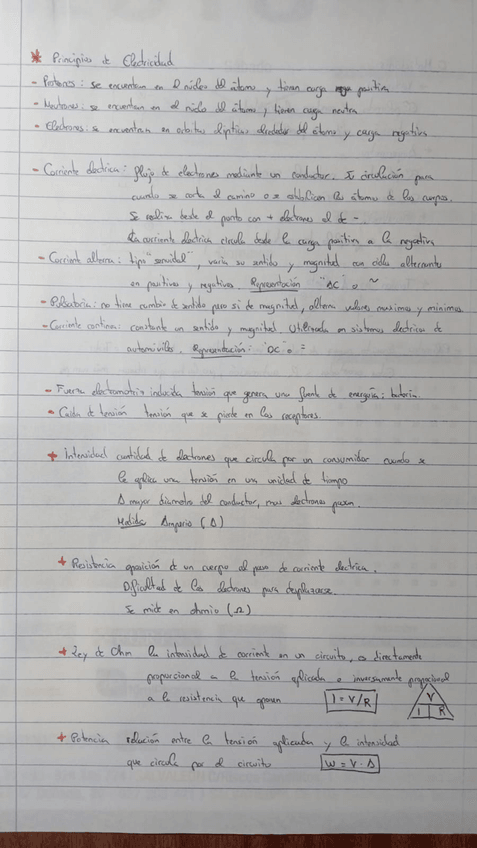 * Principios de Electricidad
- Protones: se encuentran en el núcleo del átomo y tienen carga positiva
- Neutrones: se encuentran en el núcleo del átomo y tienen carga neutra
- Electrones: se encuentran en orbitas elipticas alrededor del átomo y carga negativa
- Corriente electrica: flujo de electrones mediante un conductor. circulación para
cuando se corta el camino o se estabilizan los átomos de los cuerpos.
Se realiza desde el punto con + electrones al de -
La corriente electrica circula desde la carga positiva a la negativa
- Corriente alterna: tipo "senoidal", varia su sentido y magnitud con ciclos alternante
en positivos y negativos. Representación "AC" o ~
- Pulsatoria: no tiene cambio de sentido pero si de magnitud, alterna valores maximos y minimos
- Corriente continua: constante en sentido y magnitud. Utilizada en sistemas electricos de
automóviles. Representación: "DC" o =
- Fuerza electromotriz inducida tensión que genera una fuente de energía: bateria.
- Caida de tensión tensión que se pierde en los receptores.
+ Intensidad cantidad de electrones que circula por un consumidor cuando se
le aplica una tensión en una unidad de tiempo
A mayor diametro del conductor, mas electrones pasan.
Medida: Amperio (A)
+ Resistencia oposición de un cuerpo al paso de corriente electrica.
Dificultad de los electrones para desplazarse.
Se mide en ohmio (Ω)
+ Ley de Ohm la intensidad de corriente en un circuito, es directamente
proporcional a la tensión aplicada e inversamente proporcional
a la resistencia que ofrecen I = V/R V I R
+ Potencia relación entre la tensión aplicada y la intensidad
que circula por el circuito W = V · A